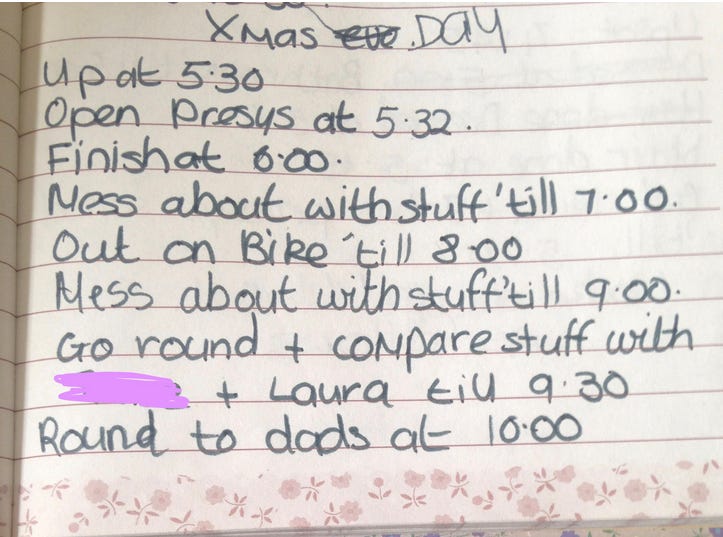 Xmas eve. DAY
Up at 5.30
Open Presys at 5.32.
Finish at 6:00.
Mess about with stuff 'till 7.00.
Out on Bike 'till 8.00
Mess about with stuff 'till 9.00.
Go round + compare stuff with
+ Laura till 9.30
Round to dads at 10.00